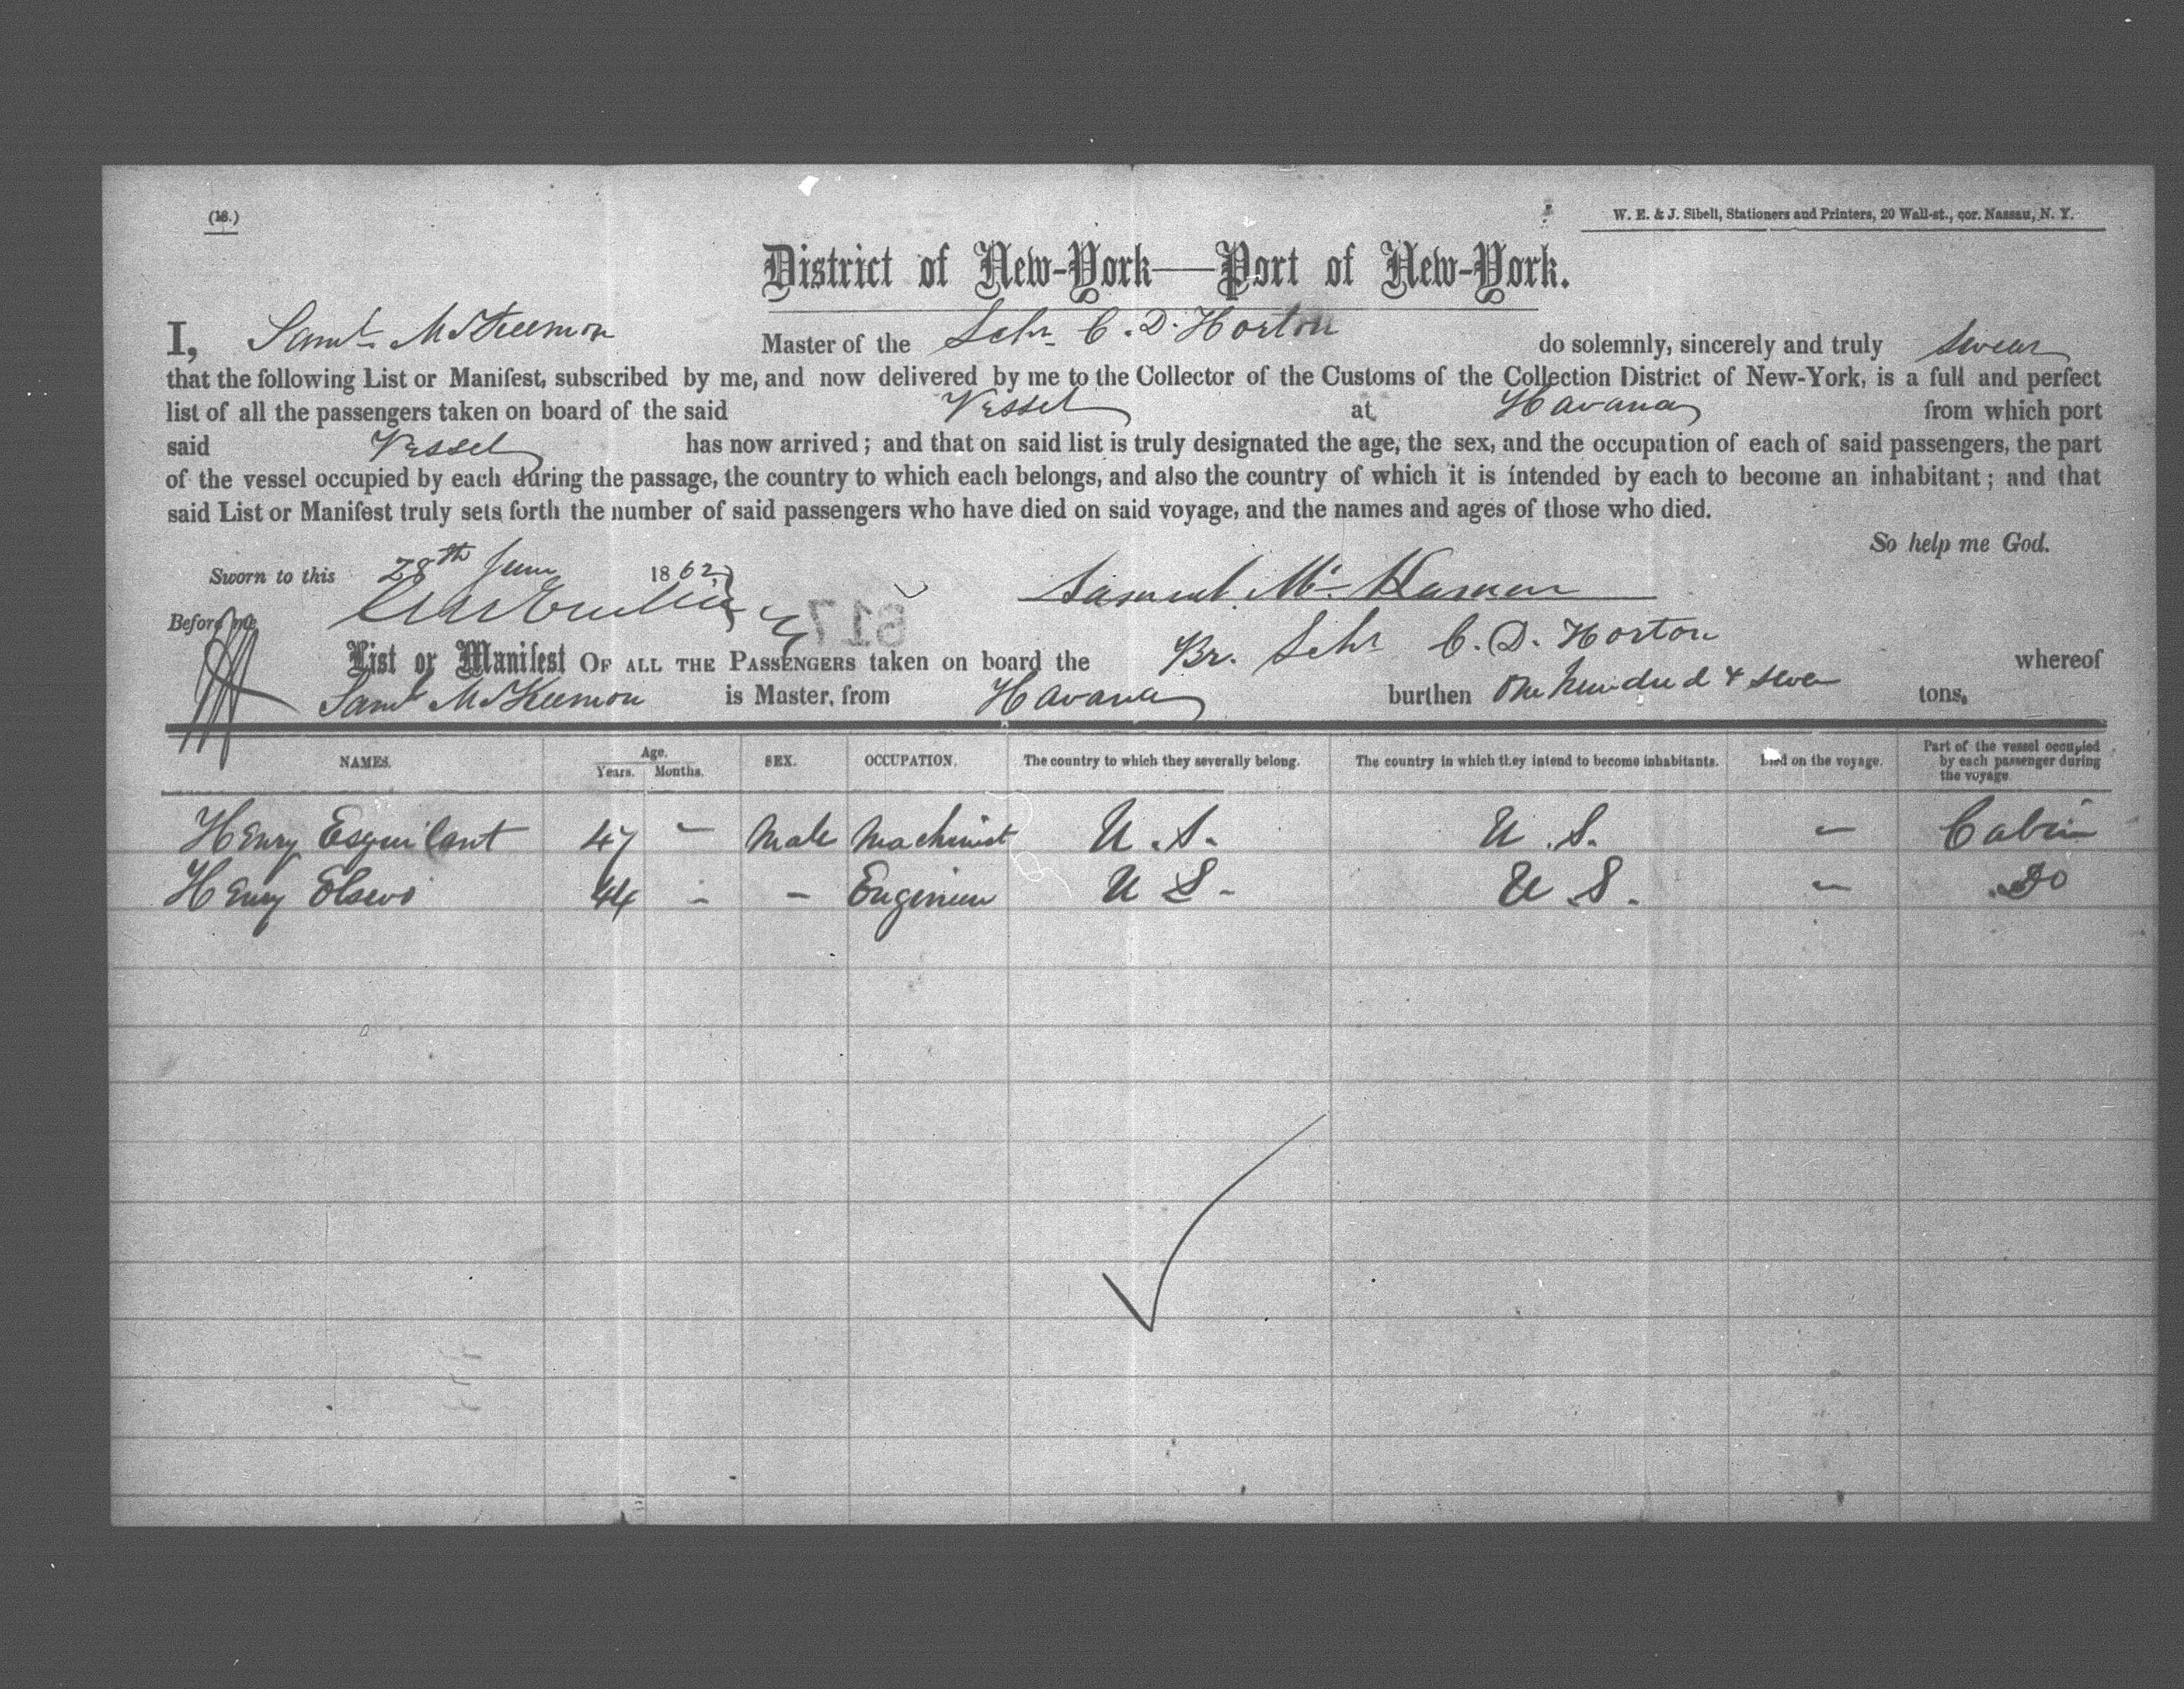 (18.)
W. E. & J. Sibell, Stationers and Printers, 20 Wall-st., cor. Nassau, N. Y.
District of New-York—Port of New-York.
I, Saml. McKeemon Master of the Schr C. D. Horton do solemnly, sincerely and truly swear
that the following List or Manifest, subscribed by me, and now delivered by me to the Collector of the Customs of the Collection District of New-York, is a full and perfect
list of all the passengers taken on board of the said Vessel at Havana from which port
said Vessel has now arrived; and that on said list is truly designated the age, the sex, and the occupation of each of said passengers, the part
of the vessel occupied by each during the passage, the country to which each belongs, and also the country of which it is intended by each to become an inhabitant; and that
said List or Manifest truly sets forth the number of said passengers who have died on said voyage, and the names and ages of those who died.
So help me God.
Sworn to this 28th June 1862
Samuel Mc
Before me
617
List or Manifest OF ALL THE PASSENGERS taken on board the Br. Schr C. D. Horton whereof
Saml McKeemon is Master, from Havana burthen One hundred & seven tons.
NAMES. Age. Years. Months. SEX. OCCUPATION. The country to which they severally belong. The country in which they intend to become inhabitants. Died on the voyage. Part of the vessel occupied by each passenger during the voyage
Henry Esquilant 47 - Male Machinist U.S. U.S. - Cabin
Henry 44 - - Engineer U S - U S. - Do